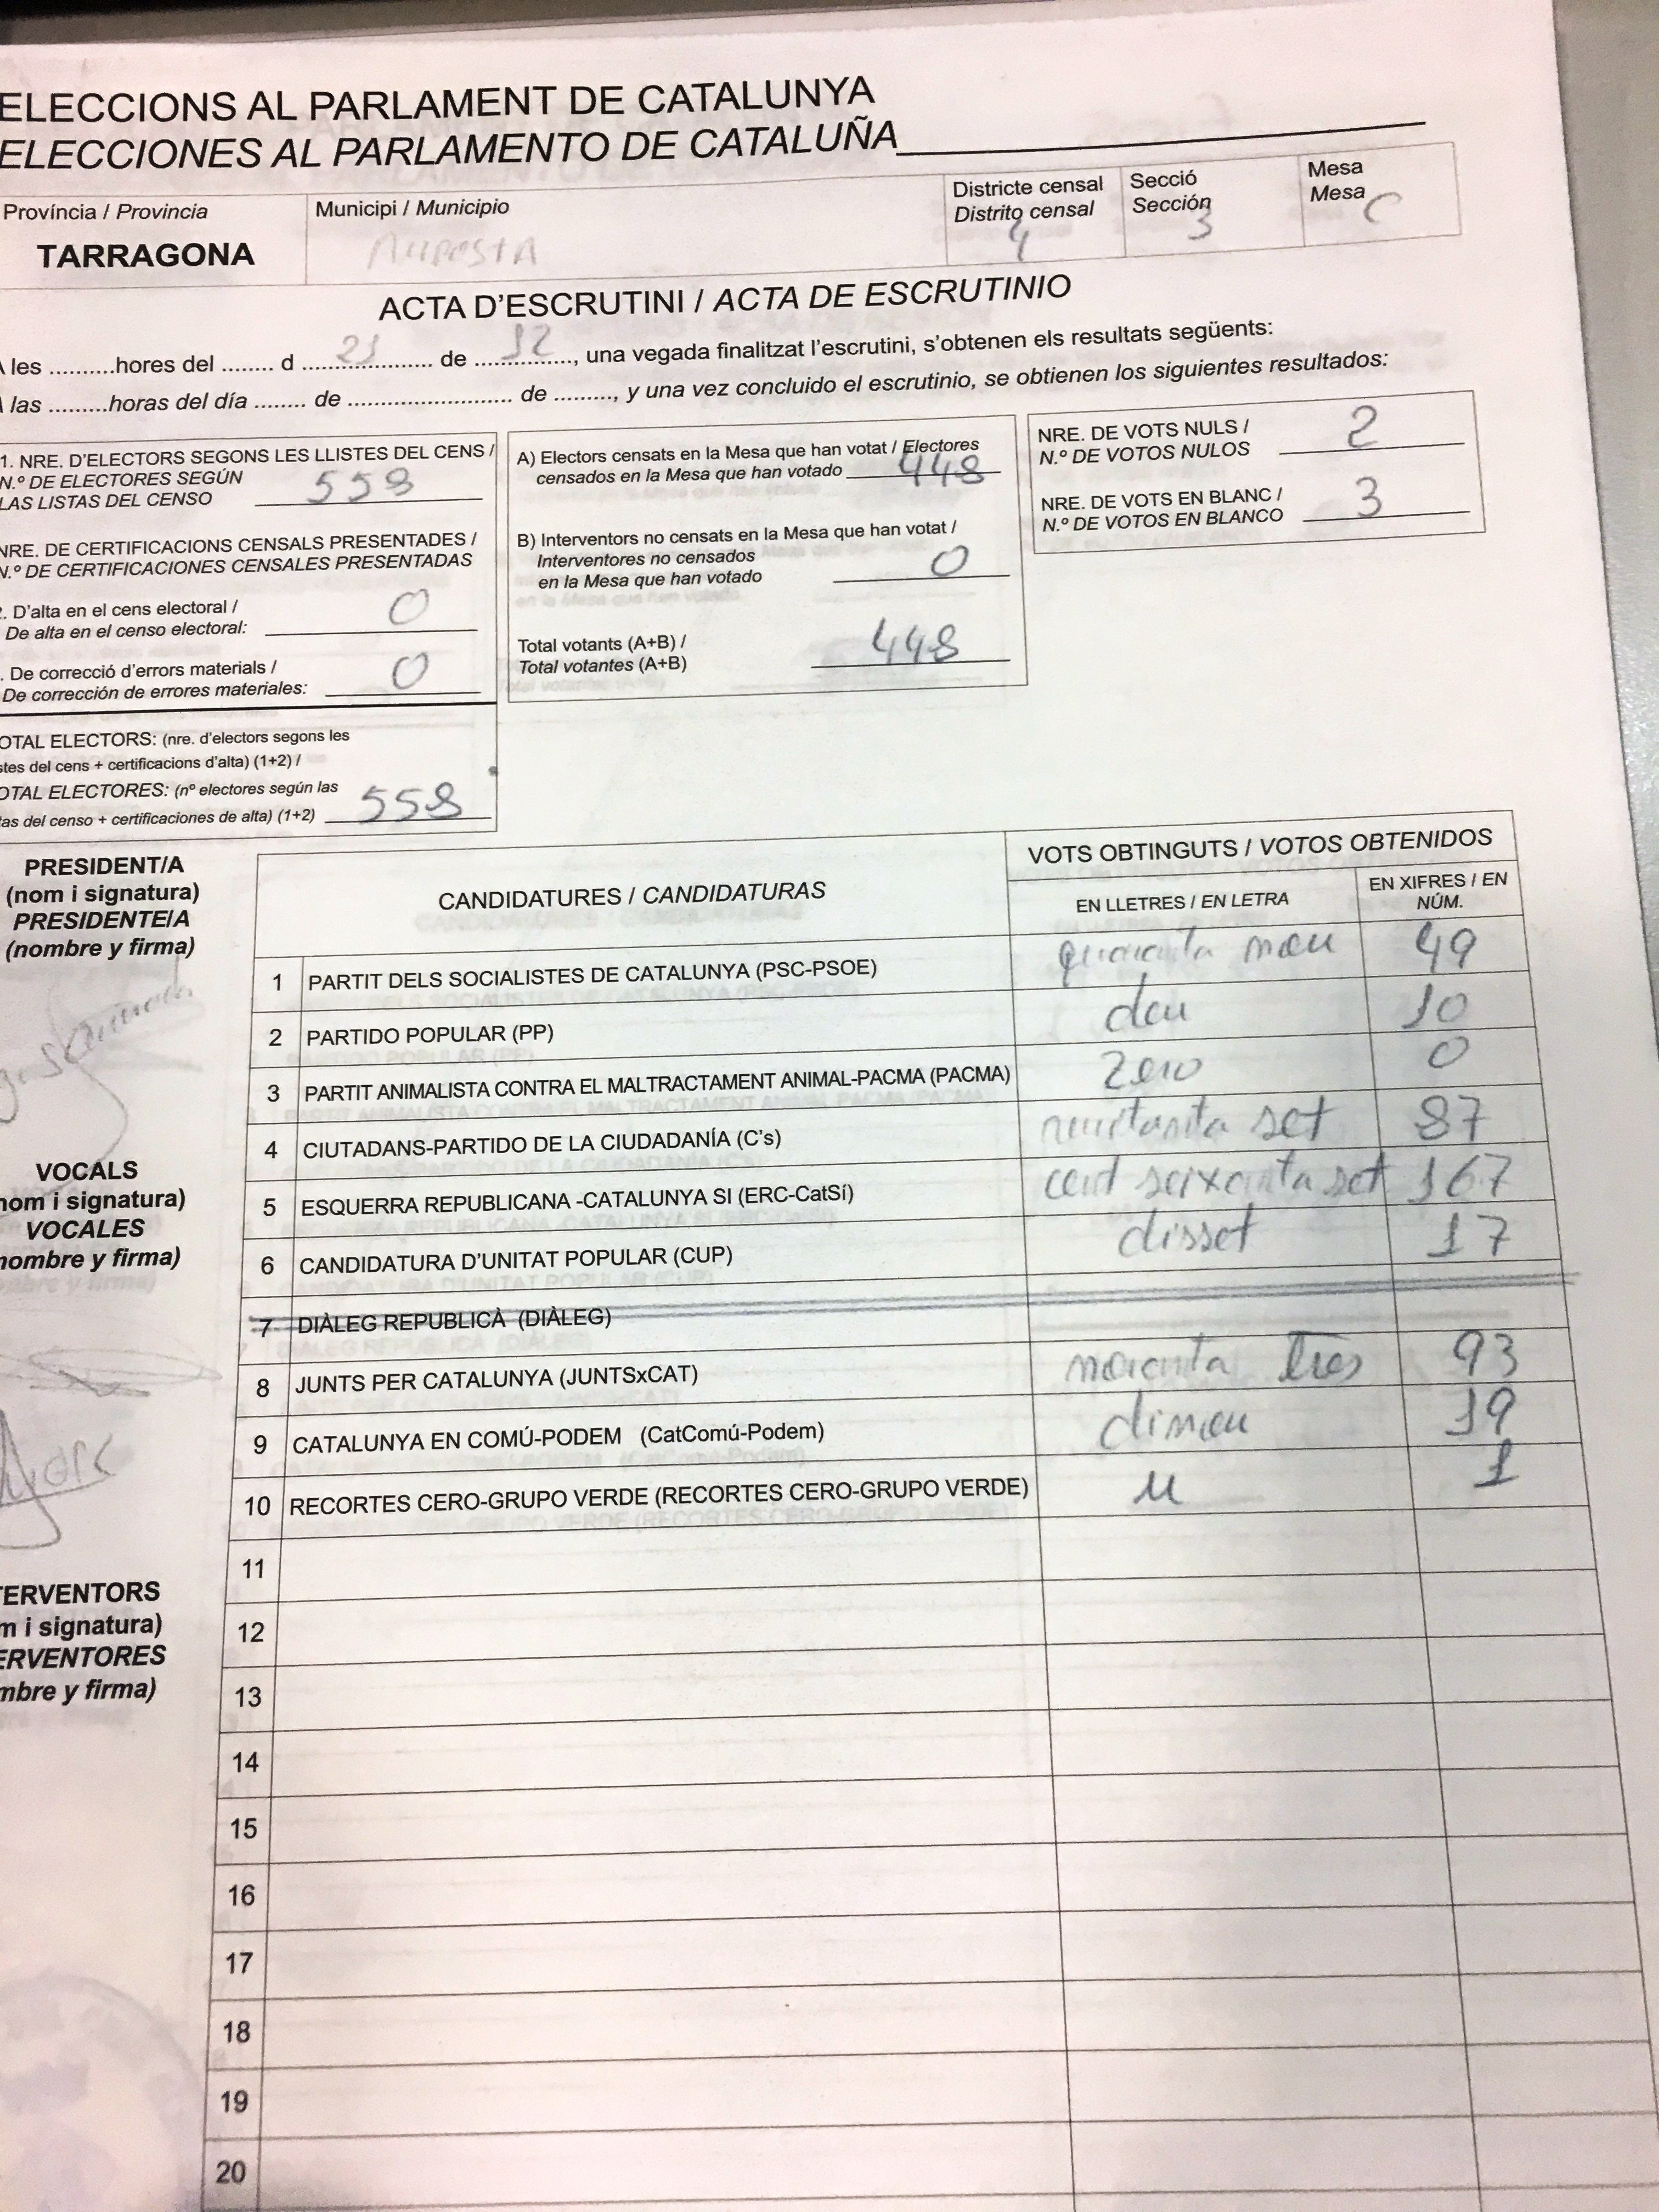 ELECCIONS AL PARLAMENT DE CATALUNYA
ELECCIONES AL PARLAMENTO DE CATALUÑA
Província / Provincia
TARRAGONA
Municipi / Municipio
AMPOSTA
Districte censal
Distrito censal
4
Secció
Sección
3
Mesa
Mesa
C
ACTA D'ESCRUTINI / ACTA DE ESCRUTINIO
A les ..........hores del ........ d 21 de 12, una vegada finalitzat l'escrutini, s'obtenen els resultats següents:
A las .........horas del día ........ de ........................ de ........., y una vez concluido el escrutinio, se obtienen los siguientes resultados:
1. NRE. D'ELECTORS SEGONS LES LLISTES DEL CENS /
N.º DE ELECTORES SEGÚN
LAS LISTAS DEL CENSO 558
NRE. DE CERTIFICACIONS CENSALS PRESENTADES /
N.º DE CERTIFICACIONES CENSALES PRESENTADAS
. D'alta en el cens electoral /
De alta en el censo electoral: 0
. De correcció d'errors materials /
De corrección de errores materiales: 0
OTAL ELECTORS: (nre. d'electors segons les
stes del cens + certificacions d'alta) (1+2) /
OTAL ELECTORES: (nº electores según las
tas del censo + certificaciones de alta) (1+2) 558
A) Electors censats en la Mesa que han votat / Electores
censados en la Mesa que han votado 448
B) Interventors no censats en la Mesa que han votat /
Interventores no censados
en la Mesa que han votado 0
Total votants (A+B) /
Total votantes (A+B) 448
NRE. DE VOTS NULS /
N.º DE VOTOS NULOS 2
NRE. DE VOTS EN BLANC /
N.º DE VOTOS EN BLANCO 3
PRESIDENT/A
(nom i signatura)
PRESIDENTE/A
(nombre y firma)
VOCALS
nom i signatura)
VOCALES
nombre y firma)
TERVENTORS
m i signatura)
ERVENTORES
mbre y firma)
CANDIDATURES / CANDIDATURAS
VOTS OBTINGUTS / VOTOS OBTENIDOS
EN LLETRES / EN LETRA
EN XIFRES / EN
NÚM.
1 PARTIT DELS SOCIALISTES DE CATALUNYA (PSC-PSOE) quaranta nou 49
2 PARTIDO POPULAR (PP) deu 10
3 PARTIT ANIMALISTA CONTRA EL MALTRACTAMENT ANIMAL-PACMA (PACMA) zero 0
4 CIUTADANS-PARTIDO DE LA CIUDADANÍA (C's) set 87
5 ESQUERRA REPUBLICANA -CATALUNYA SI (ERC-CatSí) cent seixanta set 167
6 CANDIDATURA D'UNITAT POPULAR (CUP) disset 17
7 DIÀLEG REPUBLICÀ (DIÀLEG)
8 JUNTS PER CATALUNYA (JUNTSxCAT) noranta tres 93
9 CATALUNYA EN COMÚ-PODEM (CatComú-Podem) dinou 19
10 RECORTES CERO-GRUPO VERDE (RECORTES CERO-GRUPO VERDE) u 1
11
12
13
14
15
16
17
18
19
20